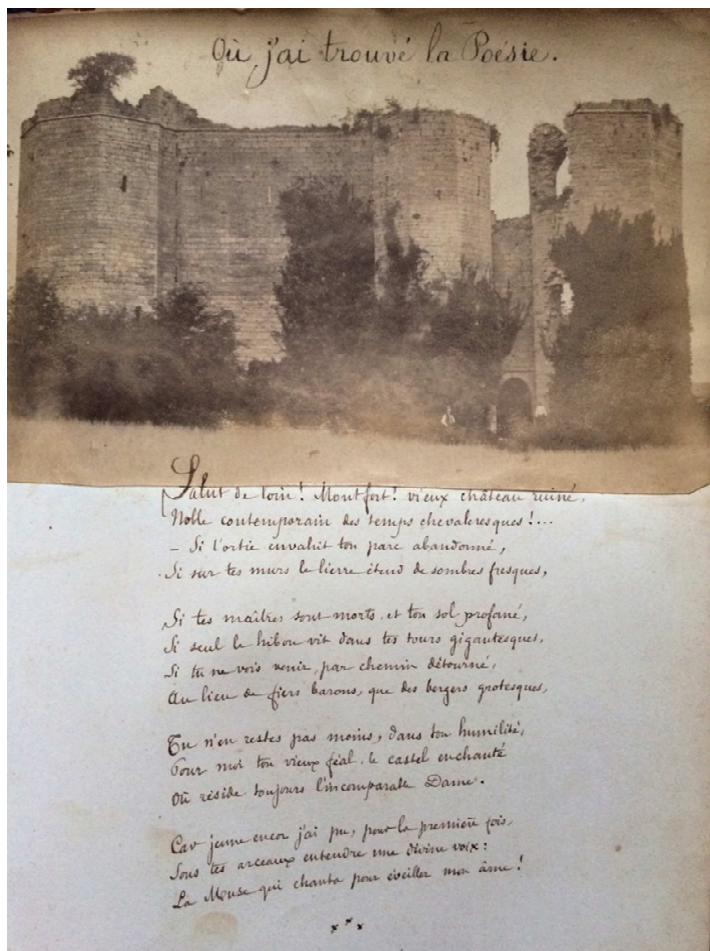 Où j'ai trouvé la Poésie.
Salut de loin! Montfort! vieux château ruiné,
Noble contemporain des temps chevaleresques!...
- Si l'ortie envahit ton parc abandonné,
Si sur tes murs le lierre étend de sombres fresques,
Si tes maîtres sont morts, et ton sol profané,
Si seul le hibou vit dans tes tours gigantesques,
Si tu ne vois venir, par chemin détourné,
Au lieu de fiers barons, que des bergers grotesques,
Tu n'en restes pas moins, dans ton humilité,
Pour moi ton vieux féal, le castel enchanté
Où réside toujours l'incomparable Dame.
Car jeune encor j'ai pu, pour la première fois,
Sous tes arceaux entendre une divine voix:
La Muse qui chanta pour éveiller mon âme!